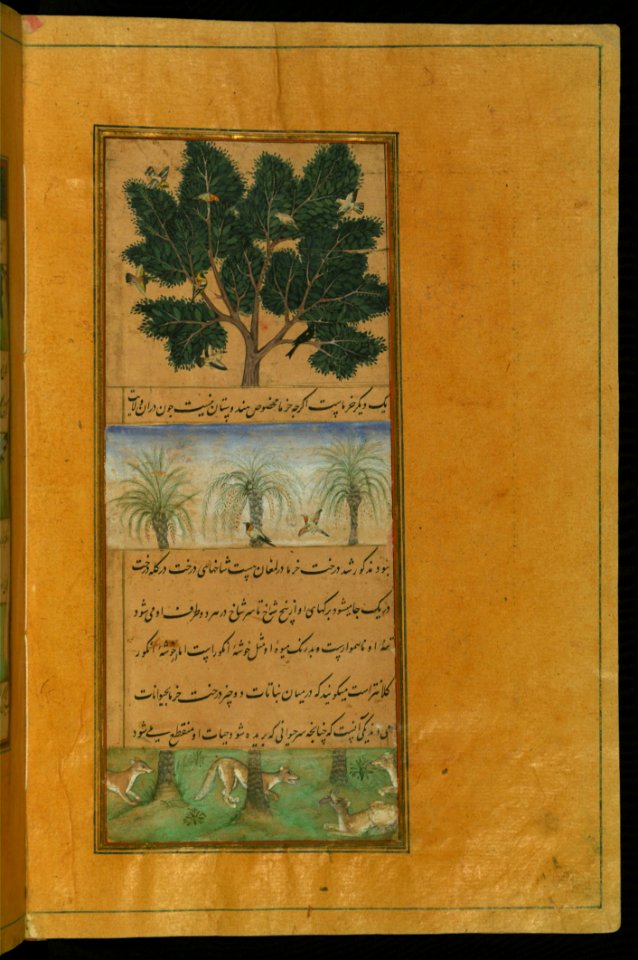 یک دیگر خرماست اگرچه خرما مخصوص هندوستان نیست چون در ان ولایت
نبود مذکور شد درخت خرما در لمغان هست شاخهای درخت در کله درخت
در یک جا میشود برکهای او از بیخ شاخ تا سر شاخ در هر دو طرف او میشود
تنهٔ او ناهموارست و بدرنک میوهٔ او مثل خوشهٔ انکورست اما خوشهٔ انکور
کلانتر است میکویند که در میان نباتات دو چیز درخت خرما بحیوانات
می ماند یکی آنست که چنانچه سر حیوانی که بریده شود حیات او منقطع می شود